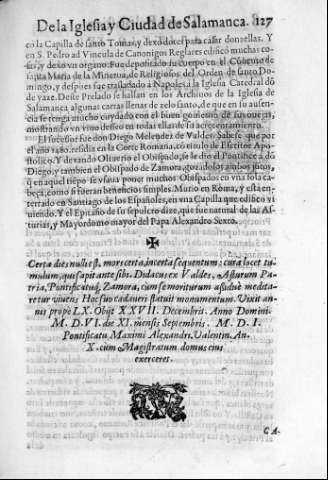 De la Iglesia y Ciudad de Salamanca. 127
cõ la Capilla de santo Tomas, y dexò dotes para casar donzellas. Y
en S. Pedro ad Vincula de Canonigos Reglares edificò muchas co-
sas, y dexò vn organo. Fue depositado su cuerpo en el Cõuento de
santa Maria de la Minerua, de Religiosos del Orden de santo Do-
mingo, y despues fue trasladado à Napoles a la Iglesia Catredal dõ
de yaze. Deste Prelado se hallan en los Archiuos de la Iglesia de
Salamanca algunas cartas llenas de zelo santo, de que en su ausen-
cia se tenga mucho cuydado con el buen gouierno de
mostrando vn viuo desseo en todas ellas de su acrecentamiento.
El sucessor fue don Diego Melendez de Valdes. Sabese que por
el año 1480. residia en la Corte Romana, cõ titulo de Escritor Apos
tolico. Y dexando Oliuerio el Obispado, se le dio el Pontifice à dõ
Diego, y tambien el Obispado de Zamora, gozãdolos ambos jũtos,
q̃ en aquel tiẽpo se vsaua posser muchos Obispados en vna sola ca-
beça, como si fueran beneficios simples. Murio en Roma, y està en-
terrado en Santiago de los Españoles, en vna Capilla que edificò vi
uiendo. Y el Epitafio de su sepulcro dize, que fue natural de las As-
turias, y Mayordomo mayor del Papa Alexandro Sexto.
Certa dies nulli est, mors certa, incerta sequentum: cura locet tu-
mulum, qui sapit ante sibi. Didacus ex Valdes, Asturum Pa-
tria, Pontificatuq́; Zamora, cum se moriturum assiduè medita-
retur viuens Hoc suo cadaueri statuit monumentum. Vixit an-
nis propè LX. Obijt XXVII. Decembris. Anno Domini
M. D. VI. die XI. mensis Septembris. M. D. I.
Pontificatu Maximi Alexandri, Valentin. An.
X. cum Magistratum domus eius
exerceret.
CA-